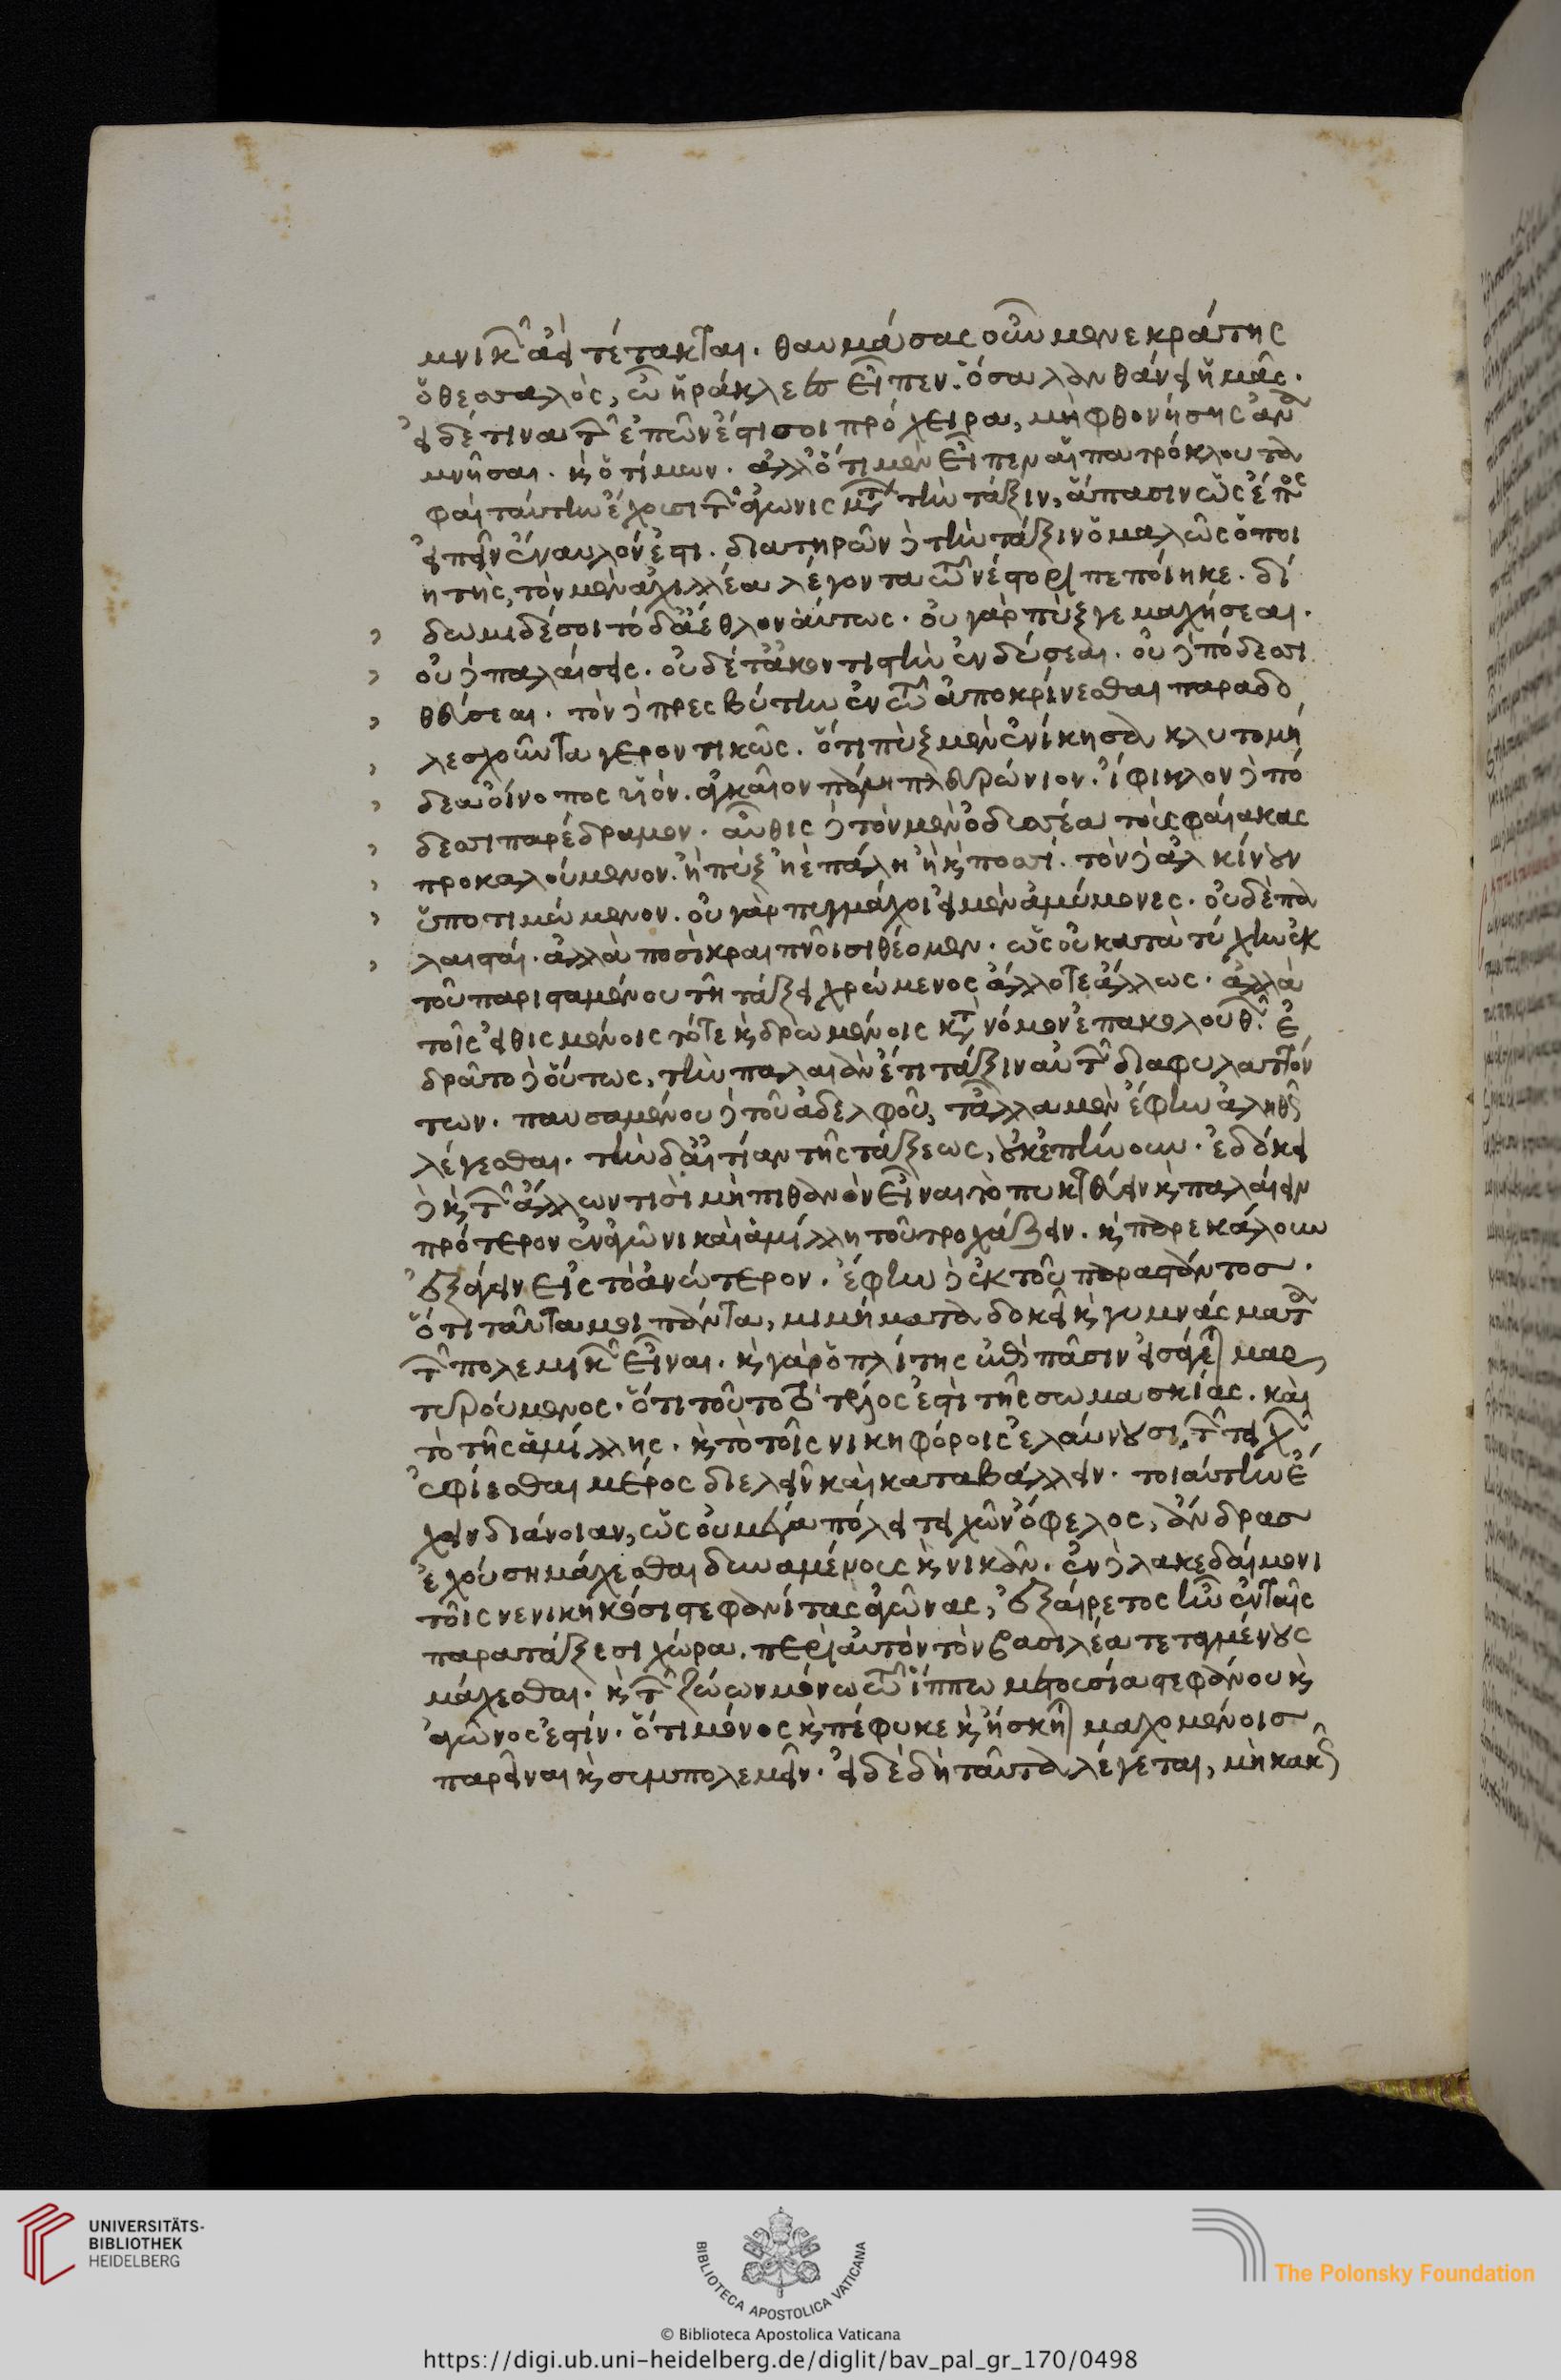 μνικῶν ἀεὶ τέτακται. θαυμάσας οὖν μενεκράτης
ὁ θεσσαλὸς, ὦ ἡράκλεις εἶπεν. ὅσα λανθάνει ἡμᾶς.
εἰ δέ τινα τῶν ἐπῶν ἐστί σοι πρόχειρα, μὴ φθονήσης ἀνα
μνῆσαι. κ̀ ὁ τίμων. ἀλλ' ὅτι μὲν εἶπεν αἱ πατρόκλου τα
φαὶ ταύτην ἔχουσι τῶν ἀγωνισμάτων τὴν τάξιν, ἅπασιν ὡς ἔπος
εἰπεῖν ἔναυλόν ἐστι. διατηρῶν δὲ τὴν τάξιν ὁμαλῶς ὁ ποι
ητὴς, τὸν μὲν ἀχιλλέα λέγοντα τῶ νέστορι πεποίηκε. δί
δωμι δέ σοι τόδ' ἄεθλον αὔτως. οὐ γὰρ πύξ γε μαχήσεαι.
οὐ δὲ παλαίσεις. οὐδέ τ' ἀκοντιστὺν ἐνδύσεαι. οὐ δὲ πόδεσσι
θεύσεαι. τὸν δὲ πρεσβύτην ἐν τῶ ἀποκρίνεσθαι παραδο
λεσχοῦντα γεροντικῶς. ὅτι πὺξ μὲν ἐνίκησα κλυτομή
δεα οἴνοπος υἱόν. ἀγκαῖον πάλη πλευρώνιον. ἴφικλον δὲ πό
δεσσι παρέδραμον. αὖθις δὲ τὸν μὲν ὀδυσσέα τοὺς φαίακας
προκαλούμενον. ἢ πὺξ ἠὲ πάλη ἢ κ̀ ποσσί. τὸν δὲ ἀλκίνουν
ὑποτιμώμενον. οὐ γὰρ πυγμάχοι εἰμὲν ἀμύμονες. οὐδὲ πα
λαισταί. ἀλλὰ ποσὶ κραιπνοῖσι θέομεν. ὡς οὐ κατὰ τύχην ἐκ
τοῦ παρισταμένου τῆ τάξει χρώμενος ἄλλοτε ἄλλως. ἀλλὰ
τοῖς εἰθισμένοις τότε κ̀ δρωμένοις κατὰ νόμον ἐπακολουθῶν. ἐ
δρᾶτο δὲ οὕτως, τὴν παλαιὰν ἔτι τάξιν αὐτῶν διαφυλαττόν
των. παυσαμένου δὲ τοῦ ἀδελφοῦ, τἆλλα μὲν ἔφην ἀληθῶς
λέγεσθαι. τὴν δ' αἰτίαν τῆς τάξεως, οὐκ ἐπήνουν. ἐδόκει
δὲ κ̀ τῶν ἄλλων τισὶ μὴ πιθανὸν εἶναι τὸ πυκτεύειν κ̀ παλαίειν
πρότερον ἐν ἀγῶνι καὶ ἁμίλλη τοῦ τροχάζειν. κ̀ παρεκάλουν
ἐξάγειν εἰς τὸ ἀνώτερον. ἔφην δὲ ἐκ τοῦ παραστάντοσ.
ὅτι ταῦτα μοι πάντα, μιμήματα δοκεῖ κ̀ γυμνάσματα
τῶν πολεμικῶν εἶναι. κ̀ γὰρ ὁπλίτης ἐπὶ πᾶσιν εἰσάγεται μαρ
τυρούμενος. ὅτι τοῦτο τὸ τέλος ἐστὶ τῆς σωμασκίας. καὶ
τὸ τῆς ἁμίλλης. κ̀ τὸ τοῖς νικηφόροις ἐλαύνουσι, τῶν τειχῶν
ἐφίεσθαι μέρος διελεῖν καὶ καταβάλλειν. τοιαύτην ἔ
χειν διάνοιαν, ὡς οὐ μέγα πόλει τειχῶν ὄφελος, ἄνδρασ
ἐχούση μάχεσθαι δυναμένους κ̀ νικᾶν. ἐν δὲ λακεδαίμονι
τοῖς νενικηκόσι στεφανίτας ἀγῶνας, ἐξαίρετος ἦν ἐν ταῖς
παρατάξεσι χώρα. περὶ αὐτὸν τὸν βασιλέα τεταγμένους
μάχεσθαι. κ̀ τῶν ζώων μόνω τῶ ἵππω μετουσία στεφάνου κ̀
ἀγῶνος ἐστίν. ὅτι μόνος κ̀ πέφυκε κ̀ ἤσκηται μαχομένοισ
παρεῖναι κ̀ συμπολεμεῖν. εἰ δὲ δὴ ταῦτα λέγεται, μὴ κακῶς
UNIVERSITÄTS-
BIBLIOTHEK
HEIDELBERG
BIBLIOTECA APOSTOLICA VATICANA
The Polonsky Foundation
© Biblioteca Apostolica Vaticana
https://digi.ub.uni-heidelberg.de/diglit/bav_pal_gr_170/0498